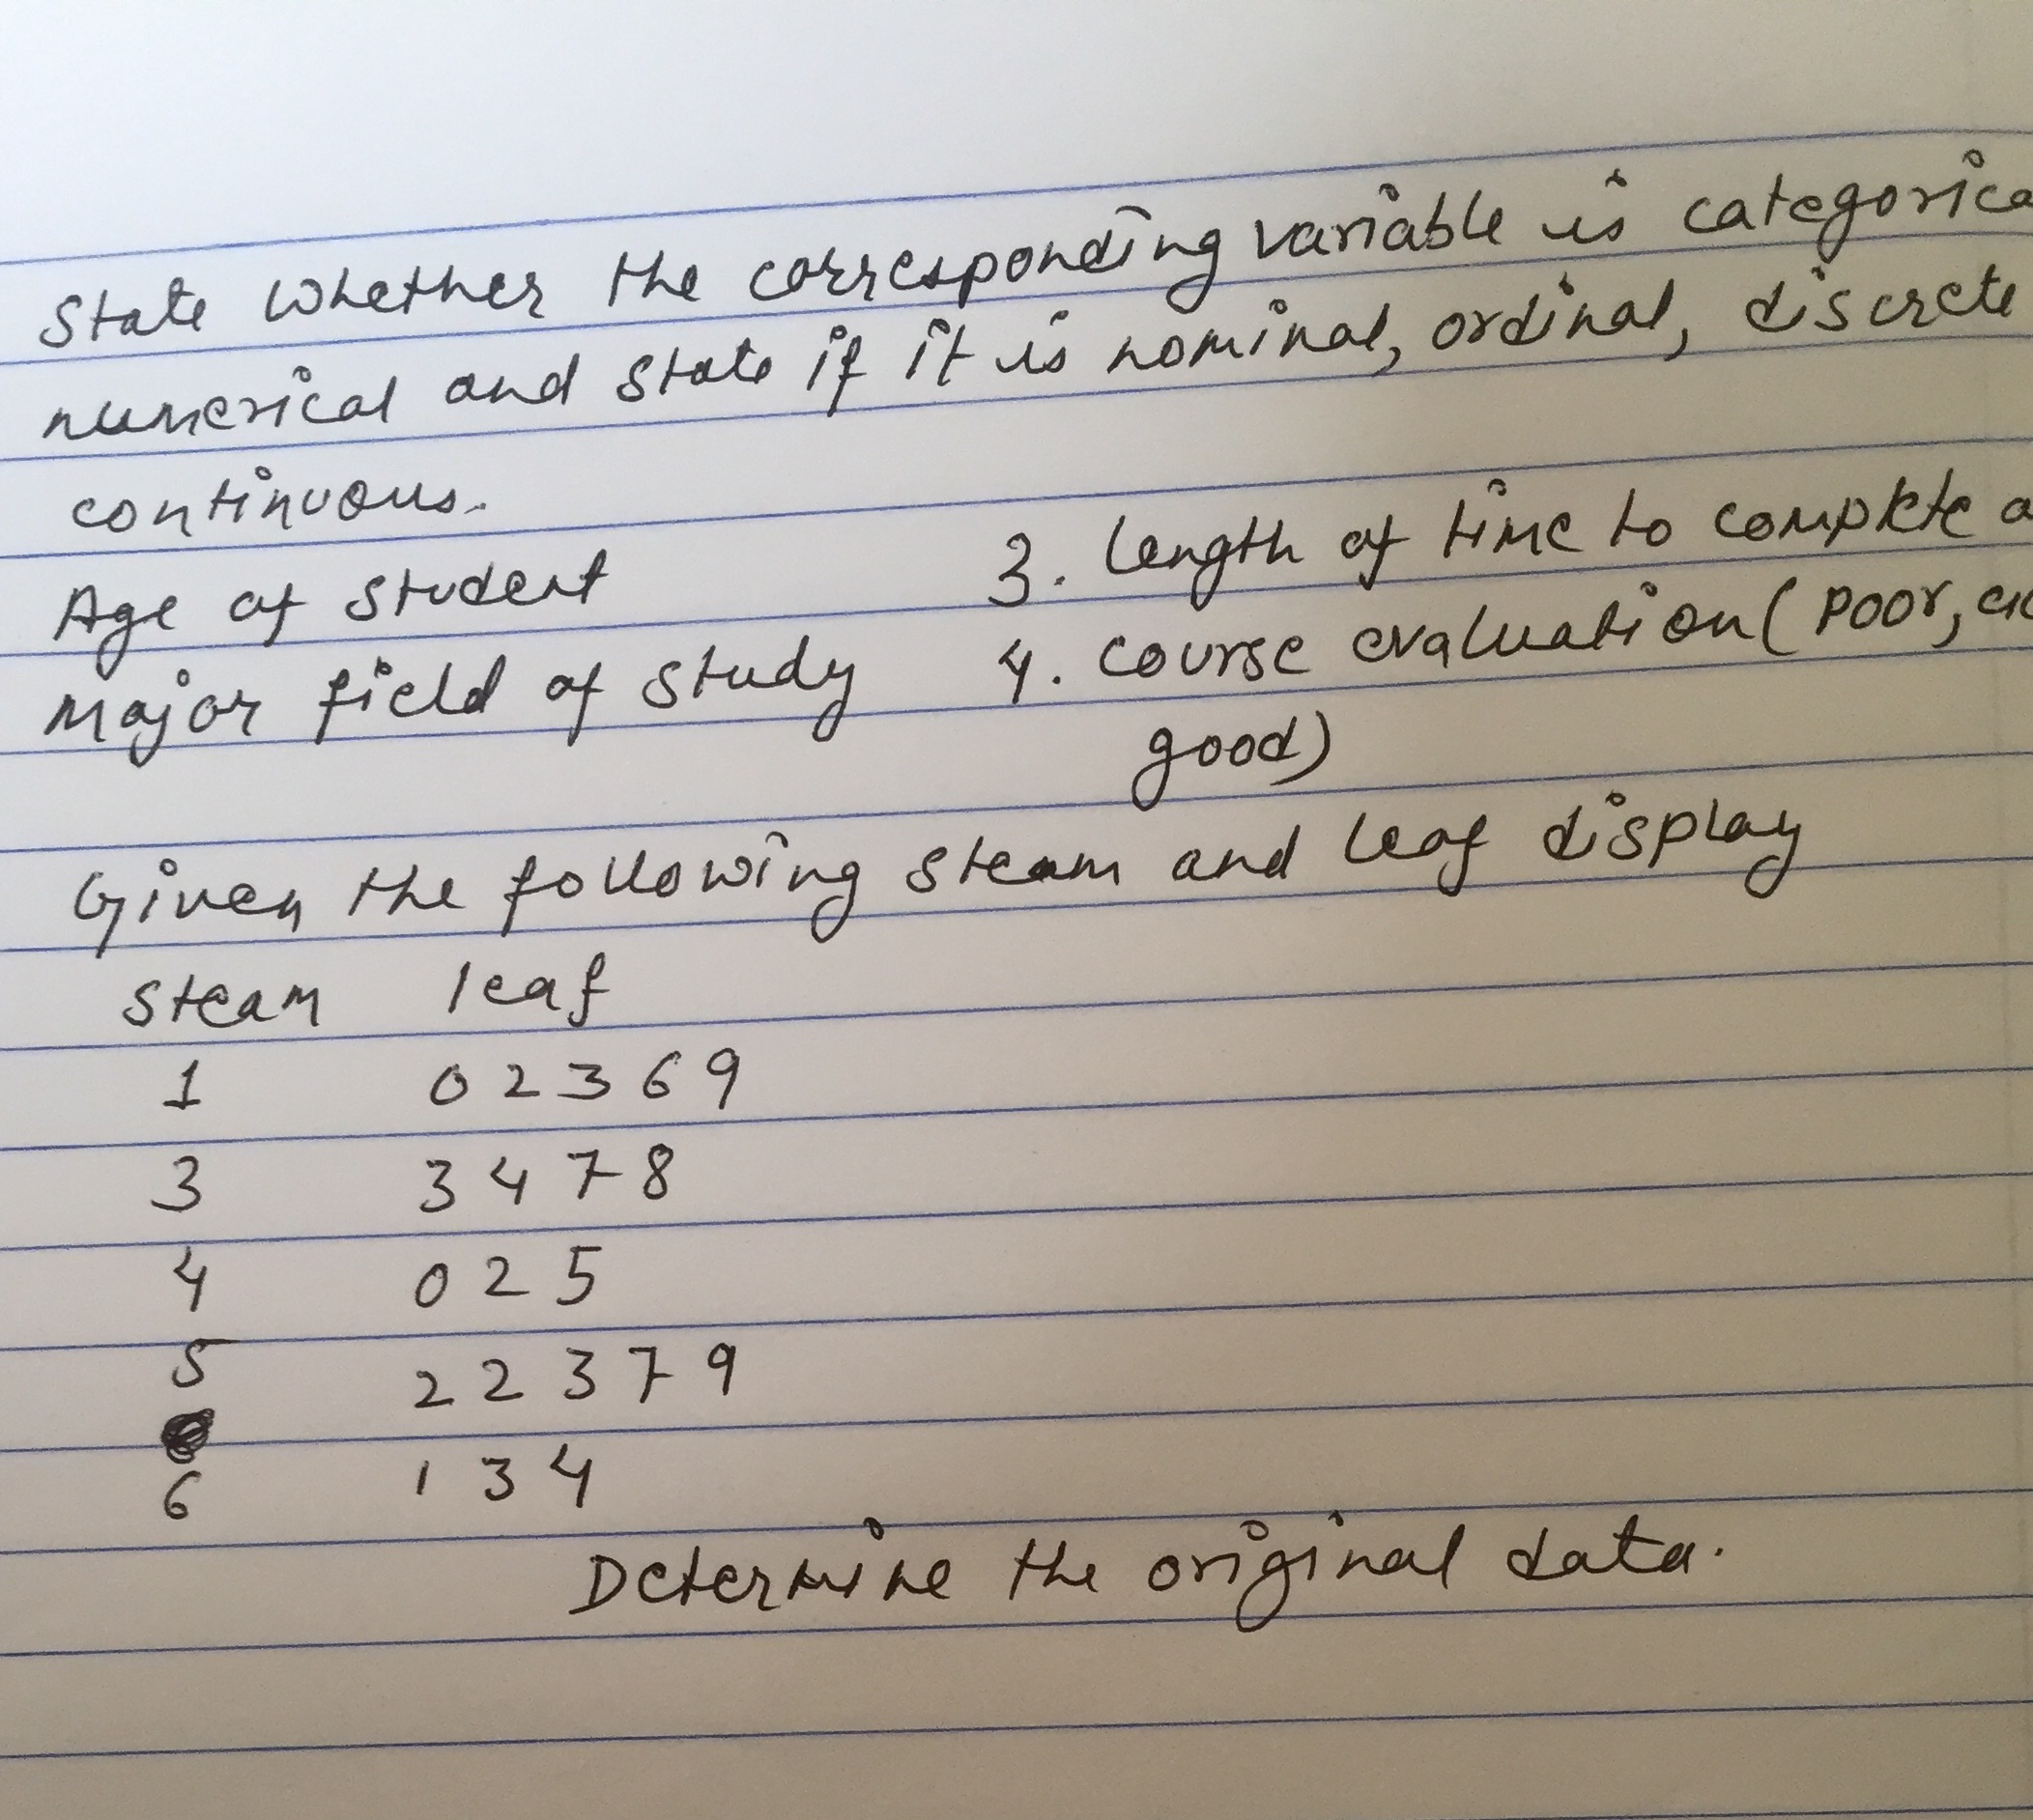 State whether the corresponding variable is categorica
numerical and state if it is nominal, ordinal, discrete
continuous.
Age of student 3. Length of time to complete a
Major field of study 4. course evaluation (poor,
good)
Given the following steam and leaf display
steam leaf
1 0 2 3 6 9
3 3 4 7 8
4 0 2 5
5 2 2 3 7 9
6 1 3 4
Determine the original data.